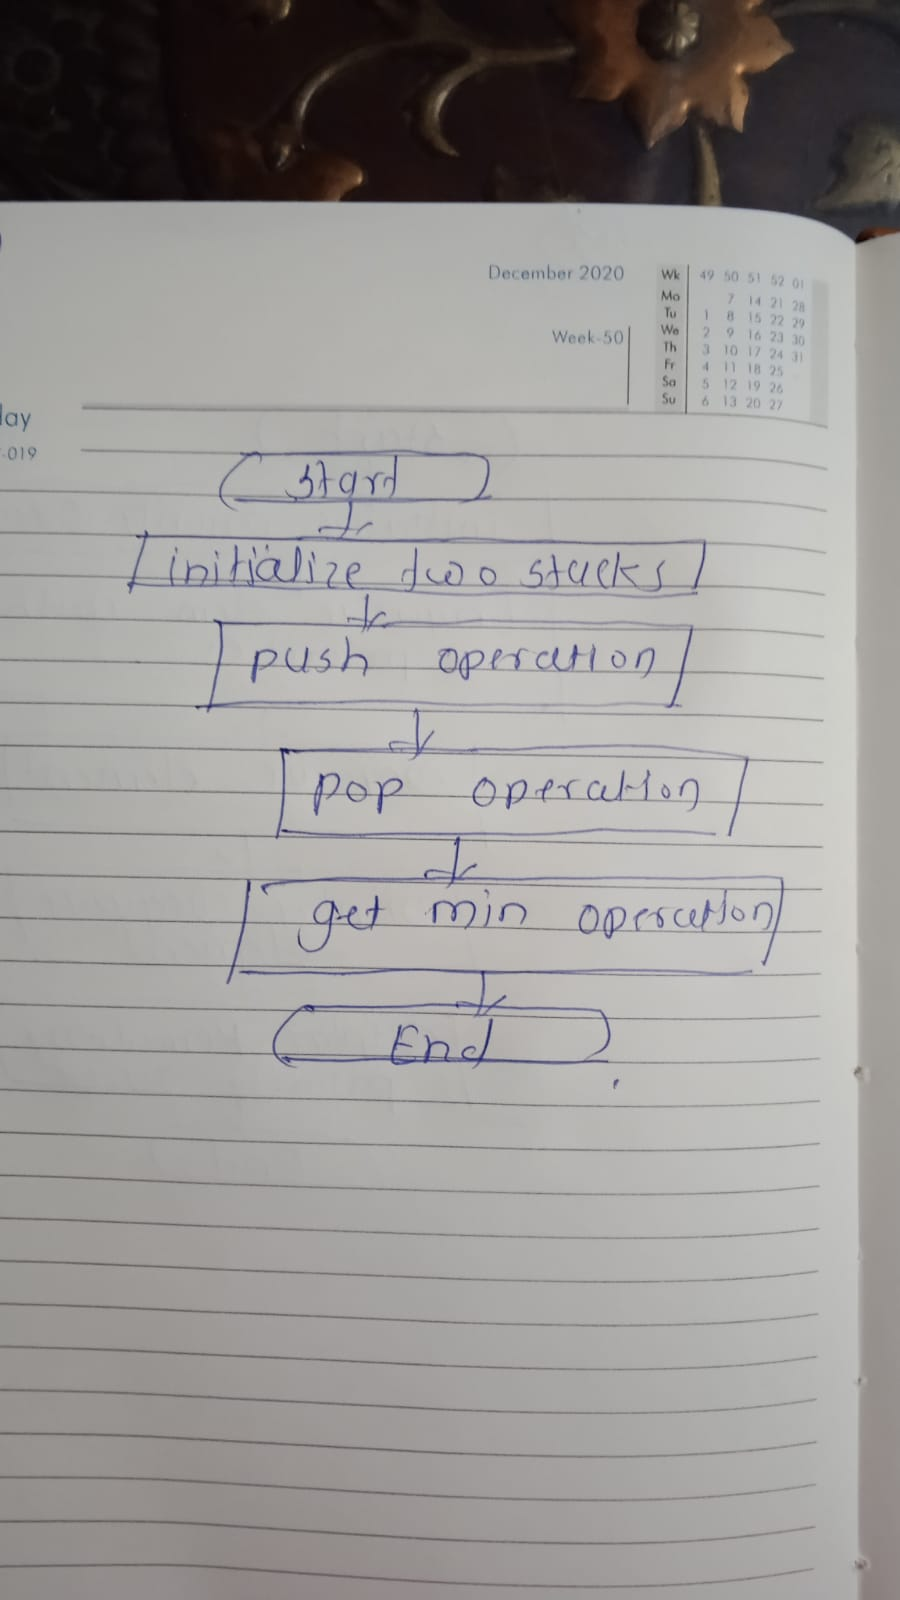 December 2020
Wk 49 50 51 52 01
Mo 7 14 21 28
Tu 1 8 15 22 29
We 2 9 16 23 30
Th 3 10 17 24 31
Fr 4 11 18 25
Sa 5 12 19 26
Su 6 13 20 27
Week-50
-019
start
initialize two stacks
push operation
pop operation
get min operation
End